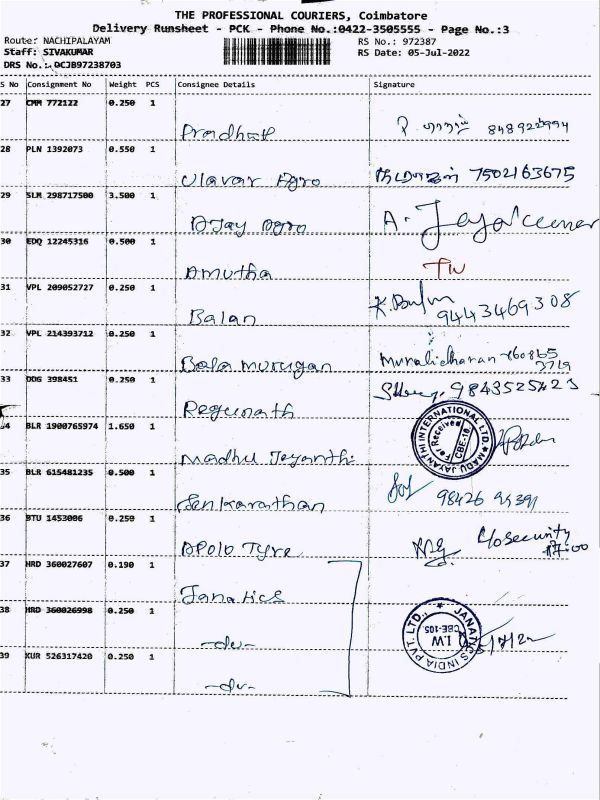 THE PROFESSIONAL COURIERS, Coimbatore
Delivery Runsheet - PCK - Phone No.:0422-3505555 - Page No.:3
Route: NACHIPALAYAM RS No.: 972387
Staff: SIVAKUMAR RS Date: 05-Jul-2022
DRS No.: OCJB97238703
S No Consignment No Weight PCS Consignee Details Signature
27 CMM 772122 0.250 1
Pradheep
28 PLN 1392073 0.550 1
Ulavar Agro 7502163675
29 SLM 298717500 3.500 1
AJay Agro A. Jayakumar
30 EDQ 12245316 0.500 1
Amutha
31 VPL 209052727 0.250 1
Balan 9443469308
32 VPL 214393712 0.250 1
Bala murugan Muralidharan
33 ODG 398451 0.250 1
Regunath
34 BLR 1900765974 1.650 1
Madhu Jayanthi
MADU JAYANTHI INTERNATIONAL LTD.
For Received
CBE-16
35 BLR 615481235 0.500 1
Senkarathan
36 BTU 1453006 0.250 1
APolo Tyre Security
37 HRD 360027607 0.190 1
Janatics
38 HRD 360026998 0.250 1
-do-
JANATICS INDIA PVT. LTD.,
CBE-105
39 XUR 526317420 0.250 1
-do-